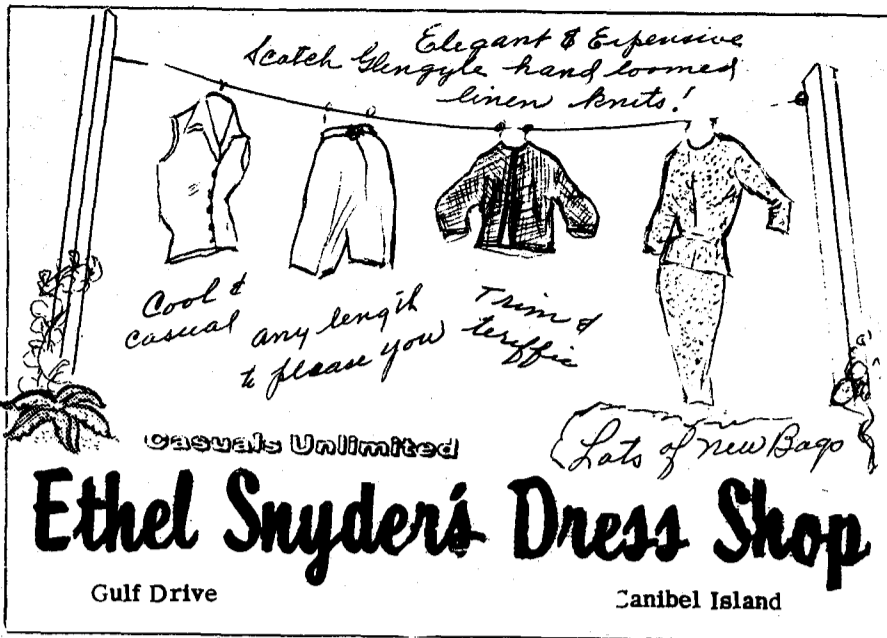 Elegant & Expensive
Scotch Glengyle hand loomed
linen knits!
Cool &
casual
any length
to please you
Trim &
teriffic
Lots of new Bags
Casuals Unlimited
Ethel Snyder's Dress Shop
Gulf Drive
Sanibel Island